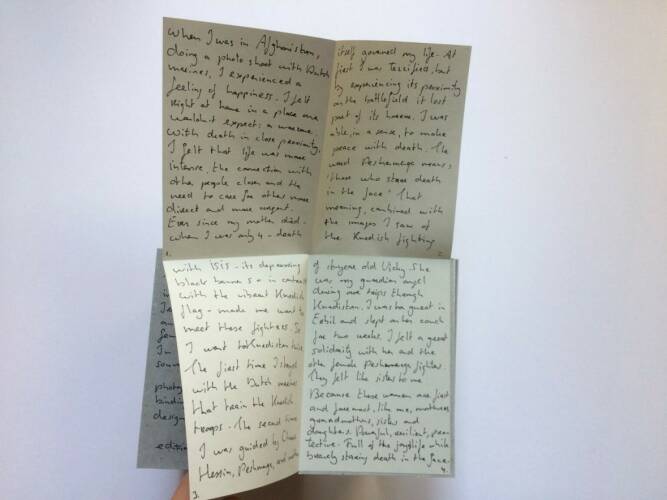 When I was in Afghanistan,
doing a photo shoot with Dutch
marines, I experienced a
feeling of happiness. I felt
right at home in a place one
wouldn't expect: a warzone.
With death in close proximity,
I felt that life was more
intense, the connection with
other people closer and the
need to care for others more
direct and more urgent.
Ever since my mother died -
when I was only 4 - death
1.
itself governed my life. At
first I was terrified, but
by experiencing its proximity
on the battlefield it lost
part of its horror. I was
able, in a sense, to make
peace with death. The
word Peshmerga means,
'those who stare death
in the face'. That
meaning, combined with
the images I saw of
the Kurdish fighting
2.
with ISIS - its depressing
black banners in contrast
with the vibrant Kurdish
flag - made me want to
meet these fighters. So
I went to Kurdistan twice
The first time I stayed
with the Dutch marines
that train the Kurdish
troops. The second time
I was guided by
Peshmerga, and mother
3.
of old Vichy. She
was my guardian angel
during our trips through
Kurdistan. I was her guest in
Erbil and slept on her couch
for two weeks. I felt a great
solidarity with her and the
other female Peshmerga fighters.
They felt like sisters to me
Because these women are first
and foremost, like me, mothers,
grandmothers, sisters and
daughters. Powerful, resilient, pro-
tective. Full of the joy of life while
bravely staring death in the face.
4.
photo
bindin
design